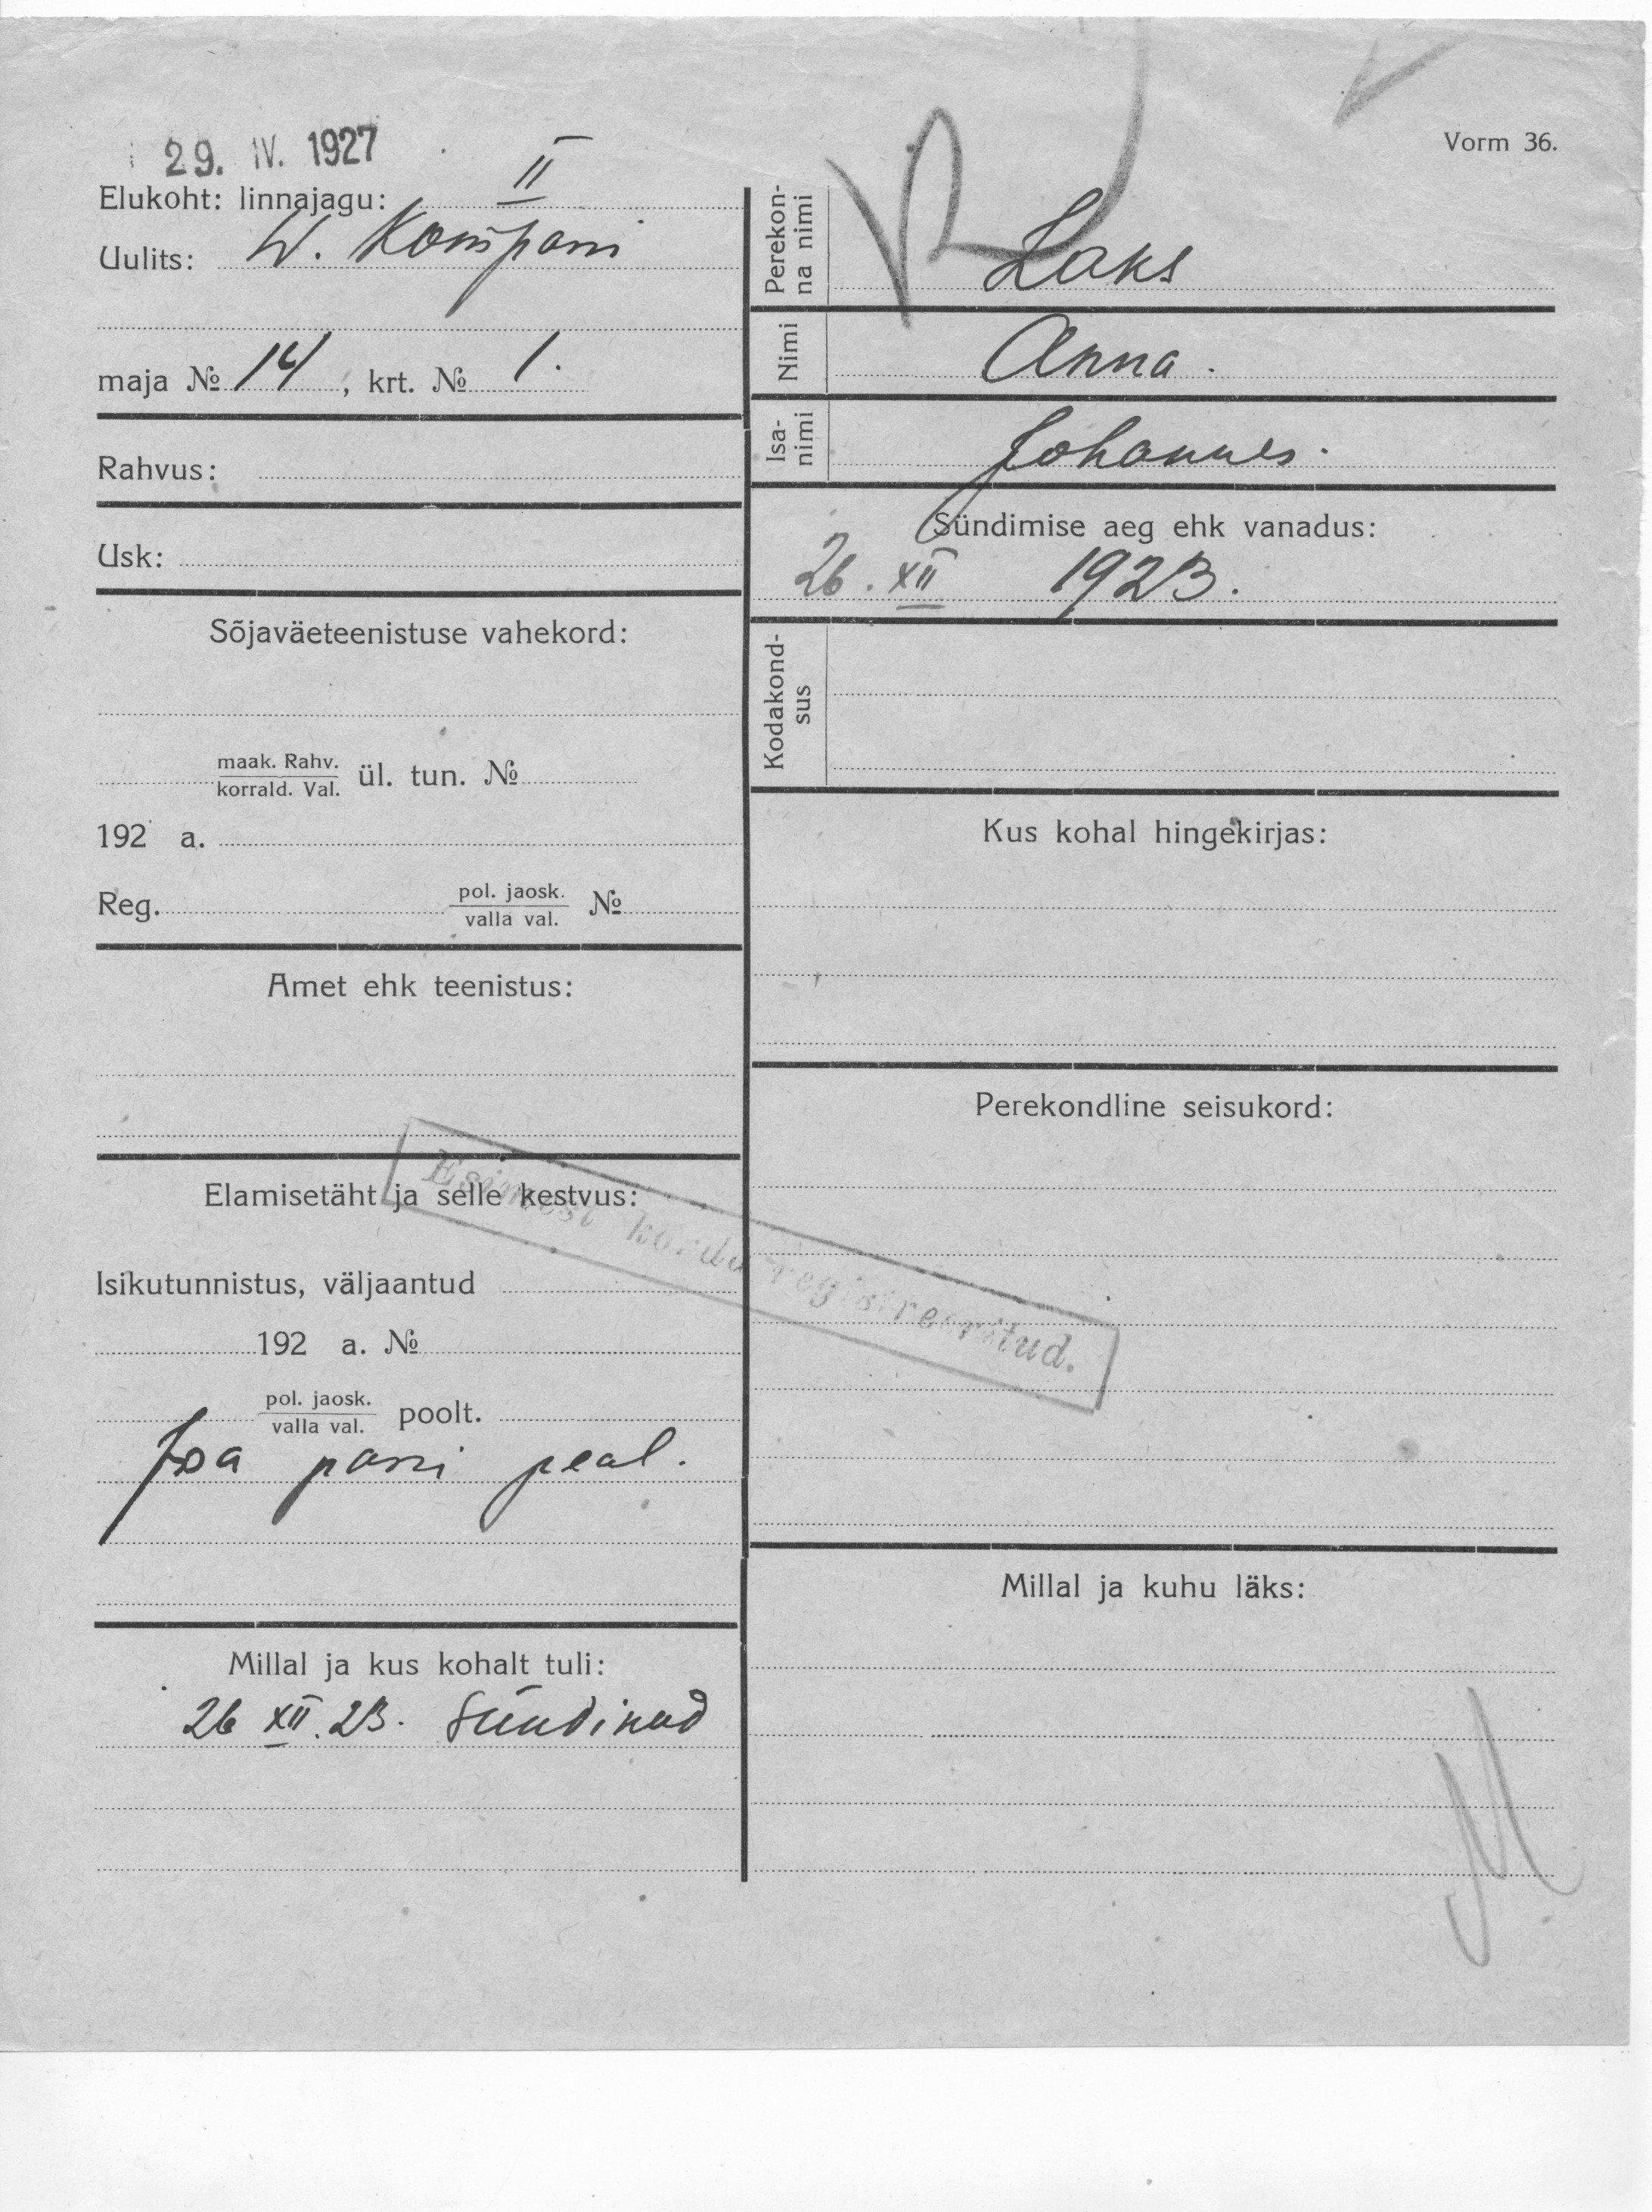 Vorm 36.
29. IV. 1927
Elukoht: linnajagu: II
Uulits: W. Kompani
maja № 14, krt. № 1.
Rahvus:
Usk:
Sõjaväeteenistuse vahekord:
maak. Rahv.
korrald. Val. ül. tun. №
192 a.
Reg. pol. jaosk.
valla val. №
Amet ehk teenistus:
Elamisetäht ja selle kestvus:
Isikutunnistus, väljaantud
192 a. №
pol. jaosk.
valla val. poolt.
Isa passi peal.
Millal ja kus kohalt tuli:
26 XII. 23. Sündinud
Perekon-
na nimi Laks
Nimi Anna.
Isa-
nimi Johannes.
Sündimise aeg ehk vanadus:
26. XII 1923.
Kodakond-
sus
Kus kohal hingekirjas:
Perekondline seisukord:
Esimest korda registreeritud.
Millal ja kuhu läks: